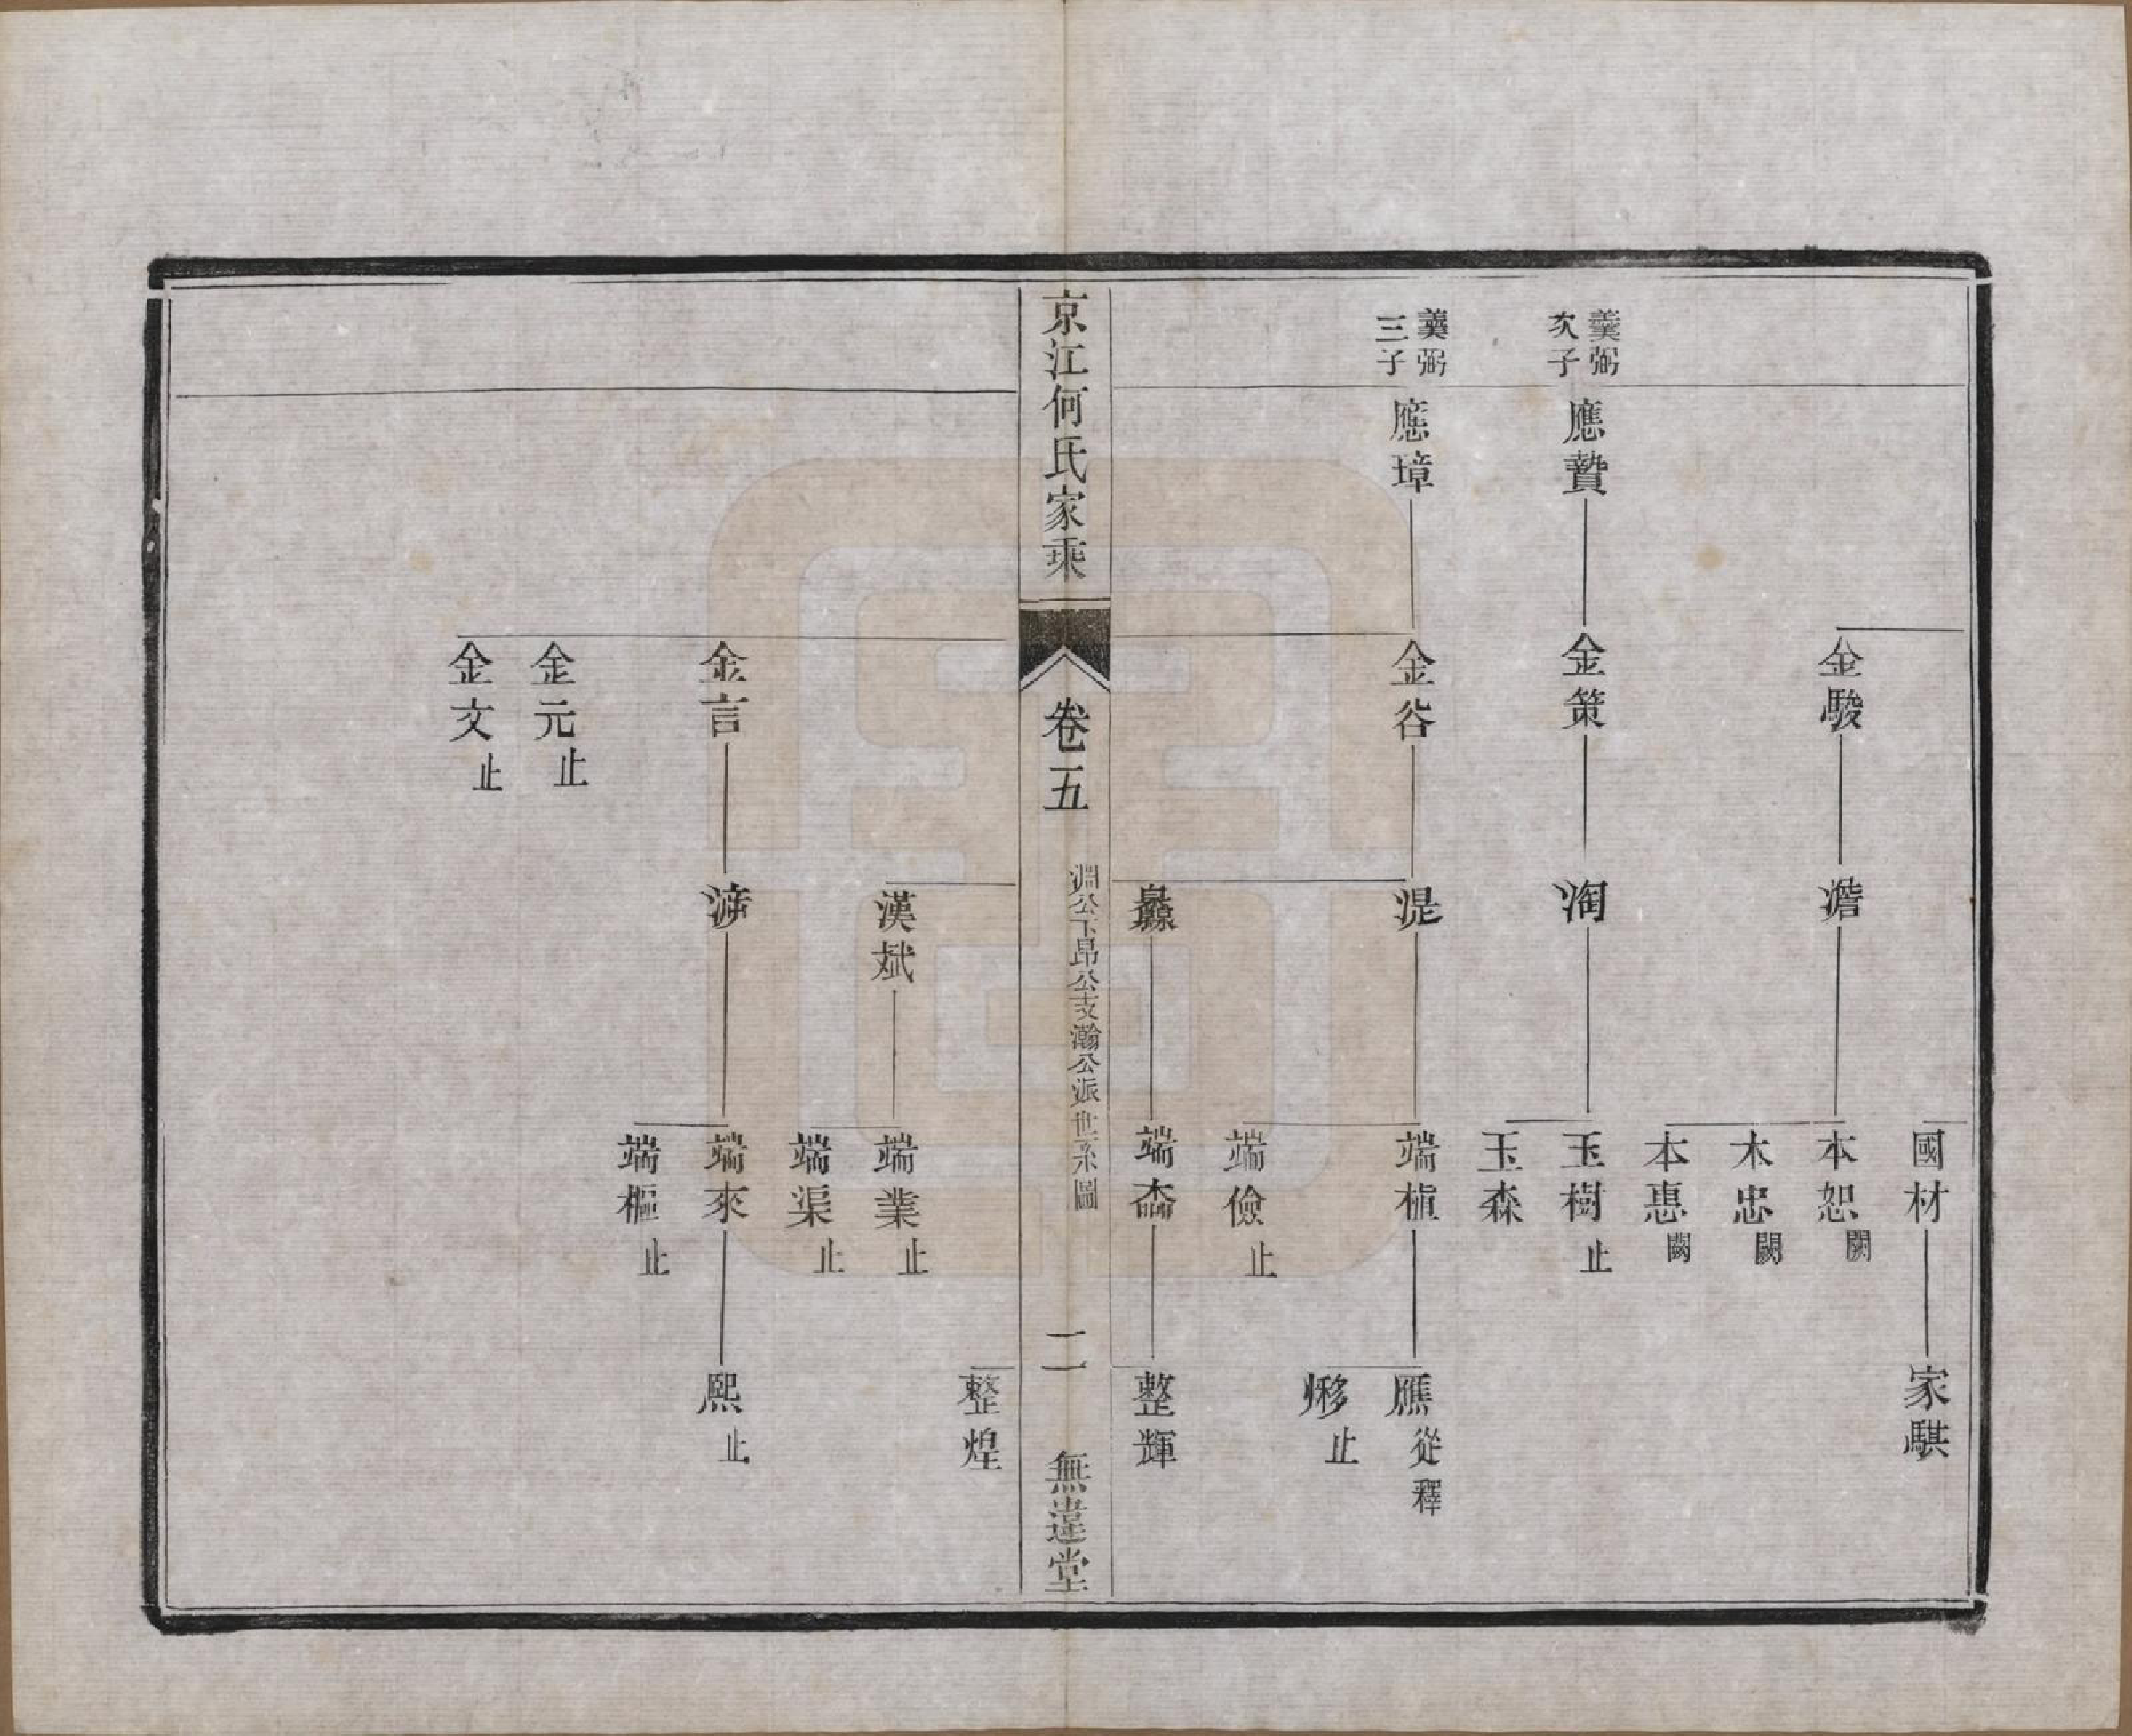 國材
家騏
金駿
澹
本恕 闕
本忠 闕
本惠 闕
羹弼
次子
應贄
金策
淘
玉樹 止
玉森
羹弼
三子
應璋
金谷
湜
端楨
應 從釋
止
端儉 止
灥
端
整輝
京江何氏家乘
卷五
淵公下昂公支瀚公派世系圖
二
無違堂
整煌
漢斌
端業 止
端渠 止
金言
端來
熙 止
端樞 止
金元 止
金文 止